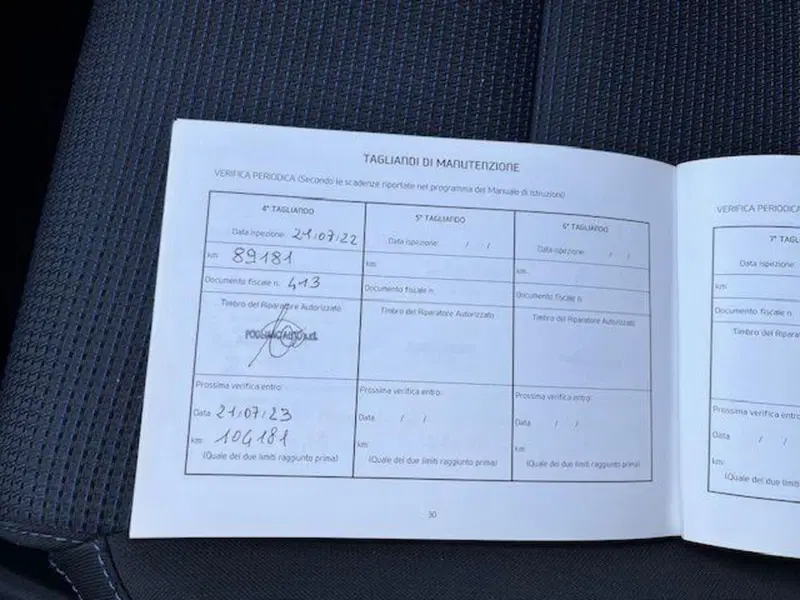 TAGLIANDI DI MANUTENZIONE
VERIFICA PERIODICA (Secondo le scadenze riportate nel programma del Manuale di Istruzioni)
4° TAGLIANDO
Data ispezione: 21/07/22
km: 89181
Documento fiscale n. 413
Timbro del Riparatore Autorizzato
POGLIANO AUTO s.r.l.
Prossima verifica entro:
Data 21/07/23
km: 104181
(Quale dei due limiti raggiunto prima)
5° TAGLIANDO
Data ispezione: / /
km:
Documento fiscale n.
Timbro del Riparatore Autorizzato
Prossima verifica entro:
Data / /
km:
(Quale dei due limiti raggiunto prima)
6° TAGLIANDO
Data ispezione: / /
km:
Documento fiscale n.
Timbro del Riparatore Autorizzato
Prossima verifica entro:
Data / /
km:
(Quale dei due limiti raggiunto prima)
30
VERIFICA PERIODICA
7° TAGL
Data ispezione:
km:
Documento fiscale n.
Timbro del Ripara
Prossima verifica entro:
Data / /
km:
(Quale dei due limiti